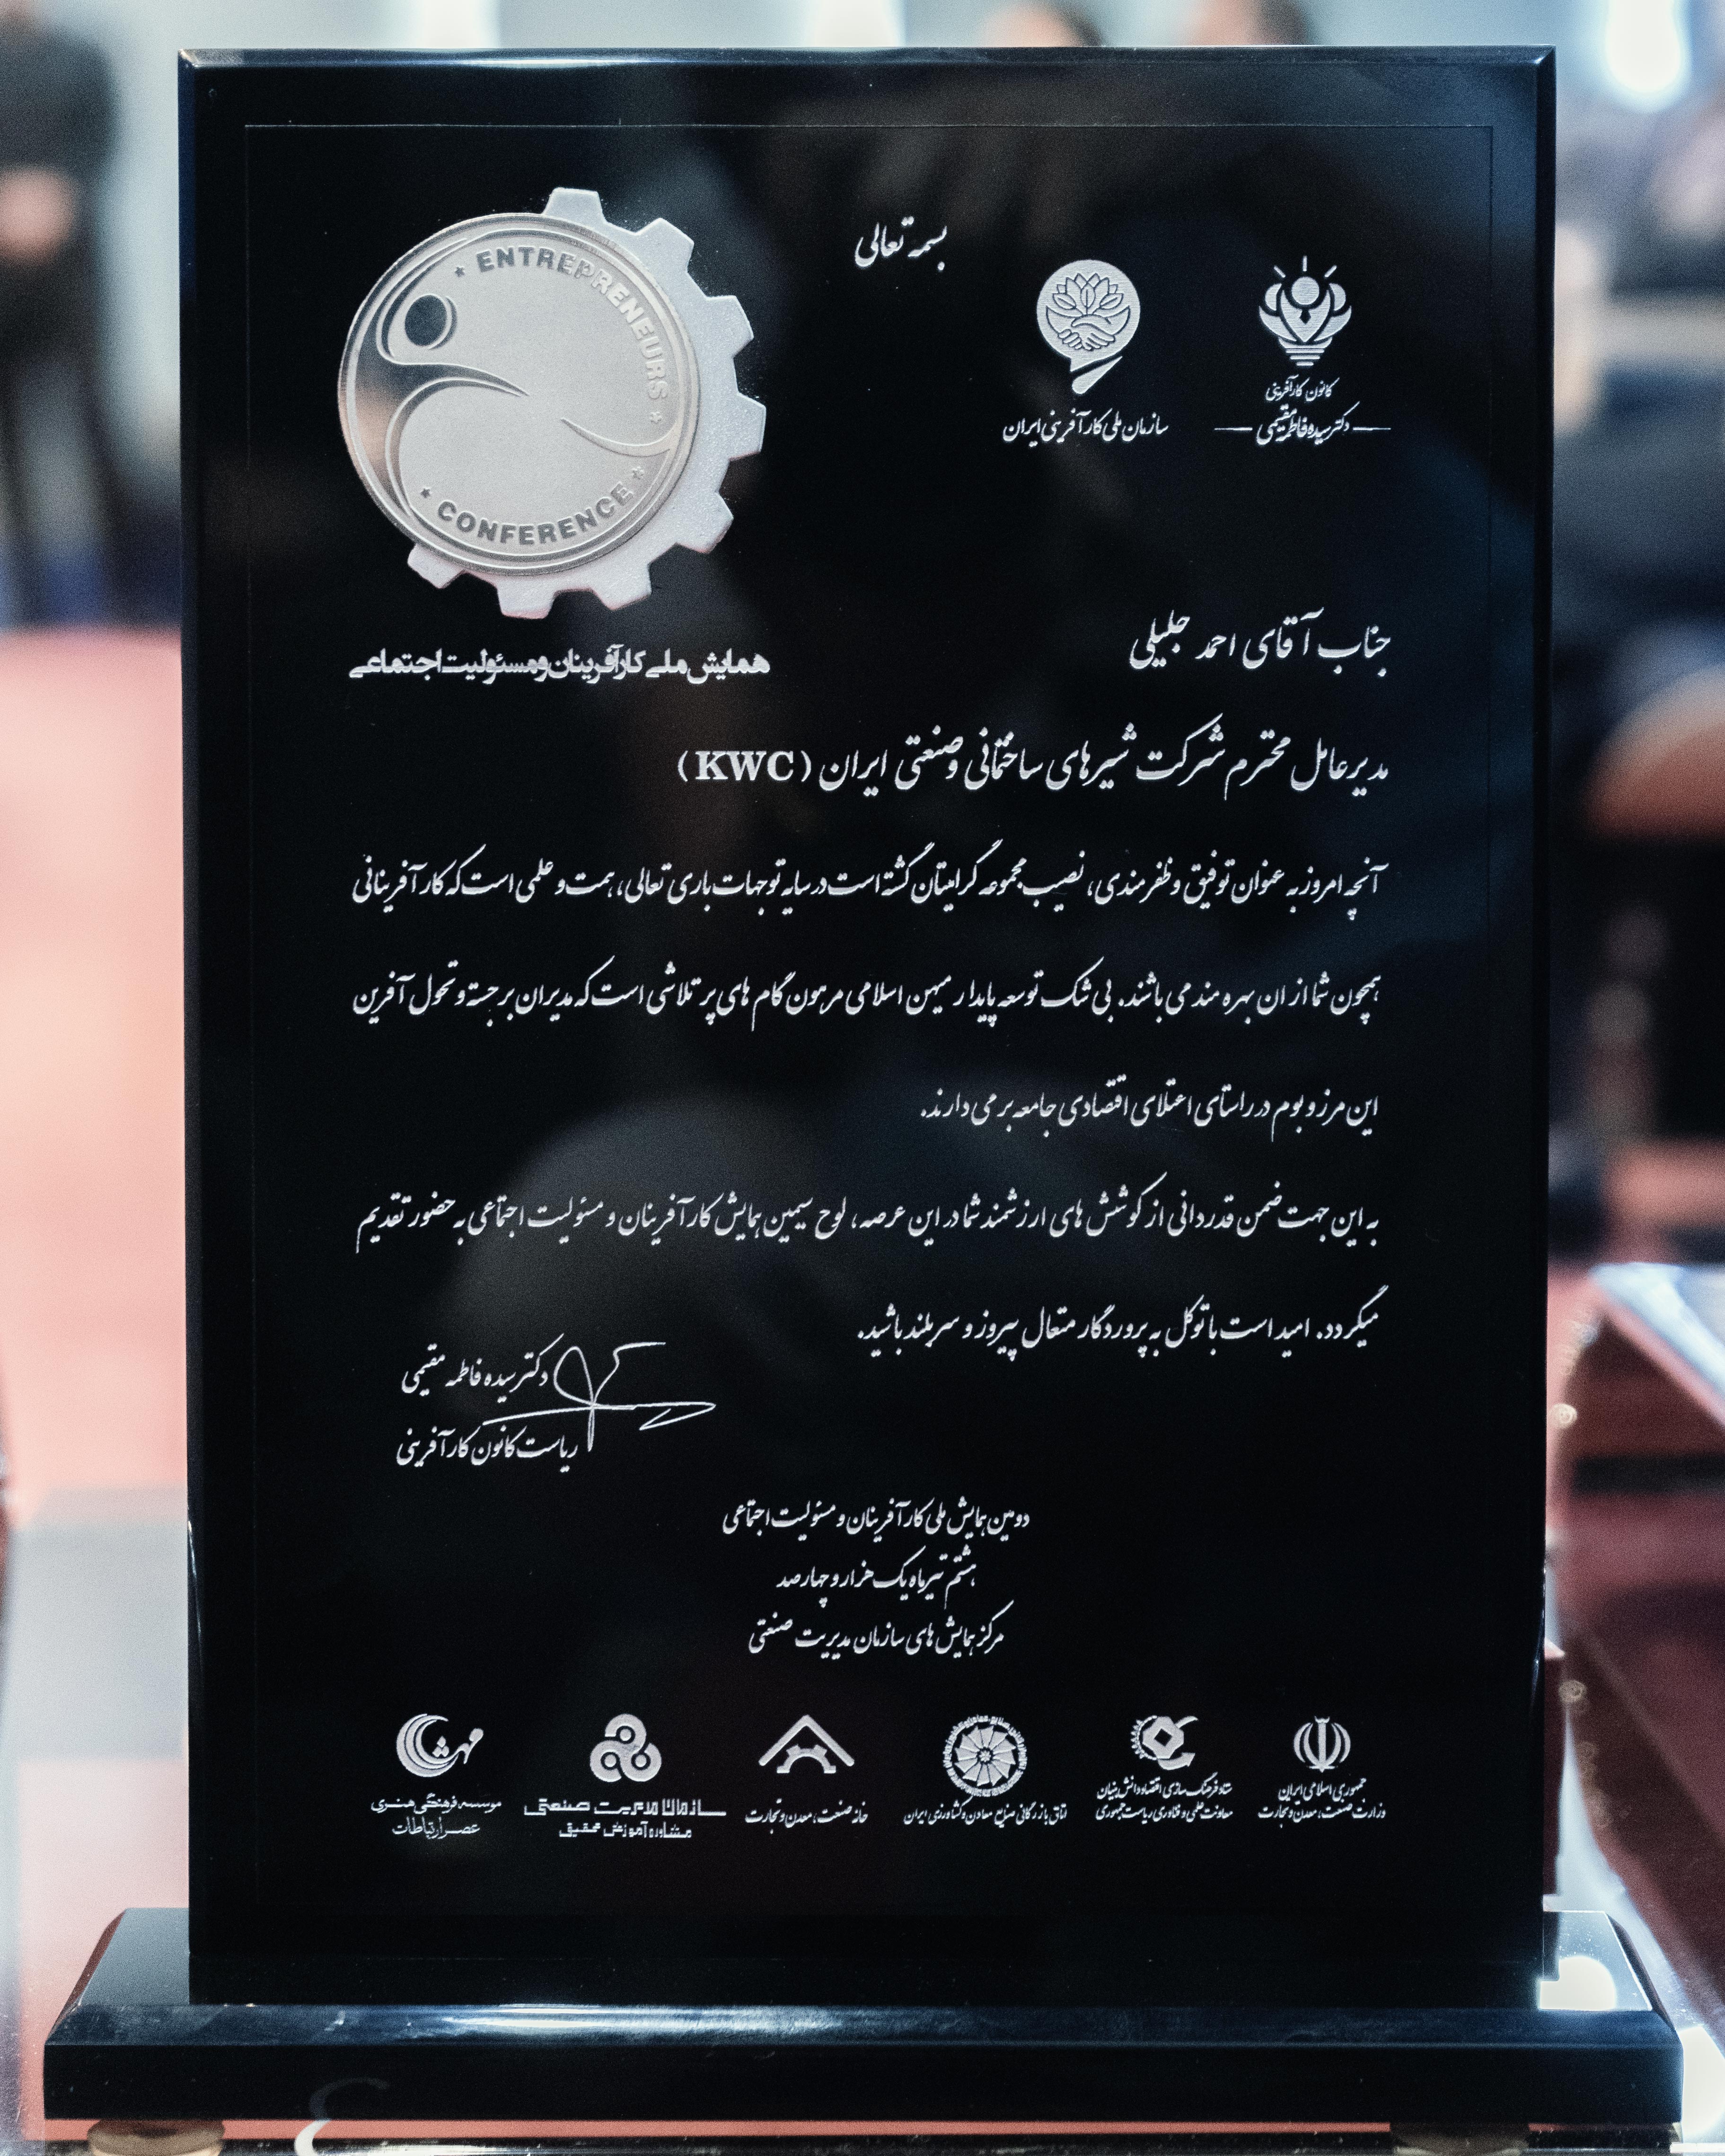 بسمه تعالی
ENTREPRENEURS
CONFERENCE
همایش ملی کارآفرینان و مسئولیت اجتماعی
سازمان ملی کارآفرینی ایران
کانون کارآفرینی
دکتر سیده فاطمه مقیمی
جناب آقای احمد جلیلی
مدیرعامل محترم شرکت شیرهای ساختمانی و صنعتی ایران (KWC)
آنچه امروز به عنوان توفیق و ظفرمندی، نصیب مجموعه گرامیتان گشته است در سایه توجهات باری تعالی، همت و علمی است که کارآفرینانی
همچون شما از ان بهره مند می باشند. بی شک توسعه پایدار میهن اسلامی مرهون گام های پر تلاشی است که مدیران برجسته و تحول آفرین
این مرز و بوم در راستای اعتلای اقتصادی جامعه بر می دارند.
به این جهت ضمن قدردانی از کوشش های ارزشمند شما در این عرصه، لوح سیمین همایش کارآفرینان و مسئولیت اجتماعی به حضور تقدیم
میگردد. امید است با توکل به پروردگار متعال پیروز و سربلند باشید.
دکتر سیده فاطمه مقیمی
ریاست کانون کارآفرینی
دومین همایش ملی کارآفرینان و مسئولیت اجتماعی
هشتم تیرماه یک هزار و چهارصد
مرکز همایش های سازمان مدیریت صنعتی
جمهوری اسلامی ایران
وزارت صنعت، معدن و تجارت
ستاد فرهنگ سازی اقتصاد دانش بنیان
معاونت علمی و فناوری ریاست جمهوری
اتاق بازرگانی صنایع معادن و کشاورزی ایران
خانه صنعت، معدن و تجارت
سازمان مدیریت صنعتی
مشاوره آموزش تحقیق
موسسه فرهنگی هنری
عصر ارتباطات